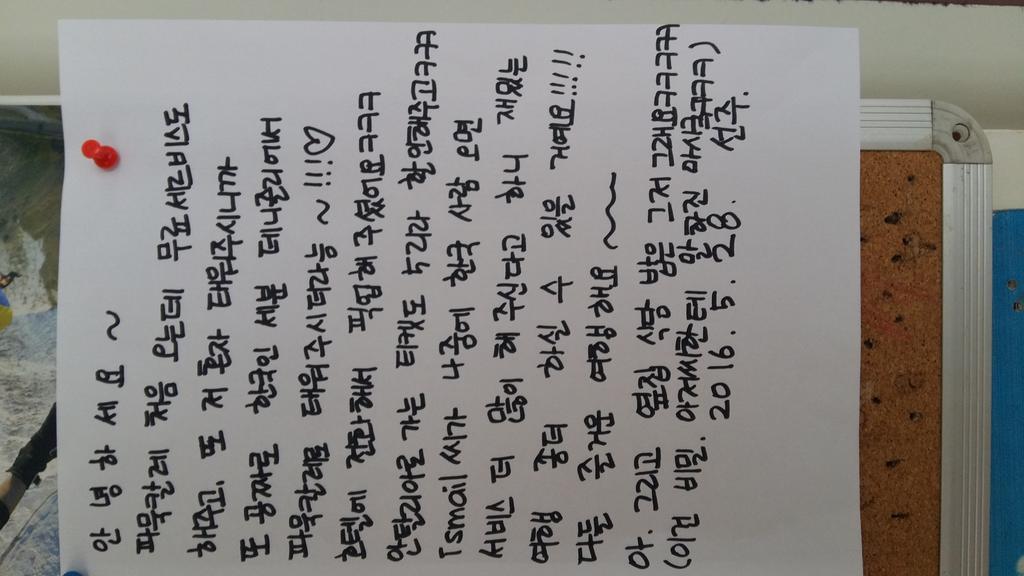 안녕하세요 ~
파묵칼레 처음 왔는데 무료세비스도
해주고. 또 저 혼자 태워주시니까
또 공짜로 한국인 데니즐리에서
파묵칼레로 태워주시더라구 ~ !!!♡
호텔에 픽업해 주셨어요ㅋㅋㅋ
가는 티켓도 ㅋㅋㅋ
Ismail 아저씨가 나중에 한국 사람 오면
더 많이 해 주신다고 하니
여행 가실 수 있을거예요!!!!!
다들 즐거운 여행하세요 ~~
아. 그리고 옆집 식당 밥은 그저그래요ㅋㅋㅋㅋㅋ
(이건 비밀. 아저씨한테 말하진 마시구ㅋㅋㅋ)
2016. 5. 28. 선주.